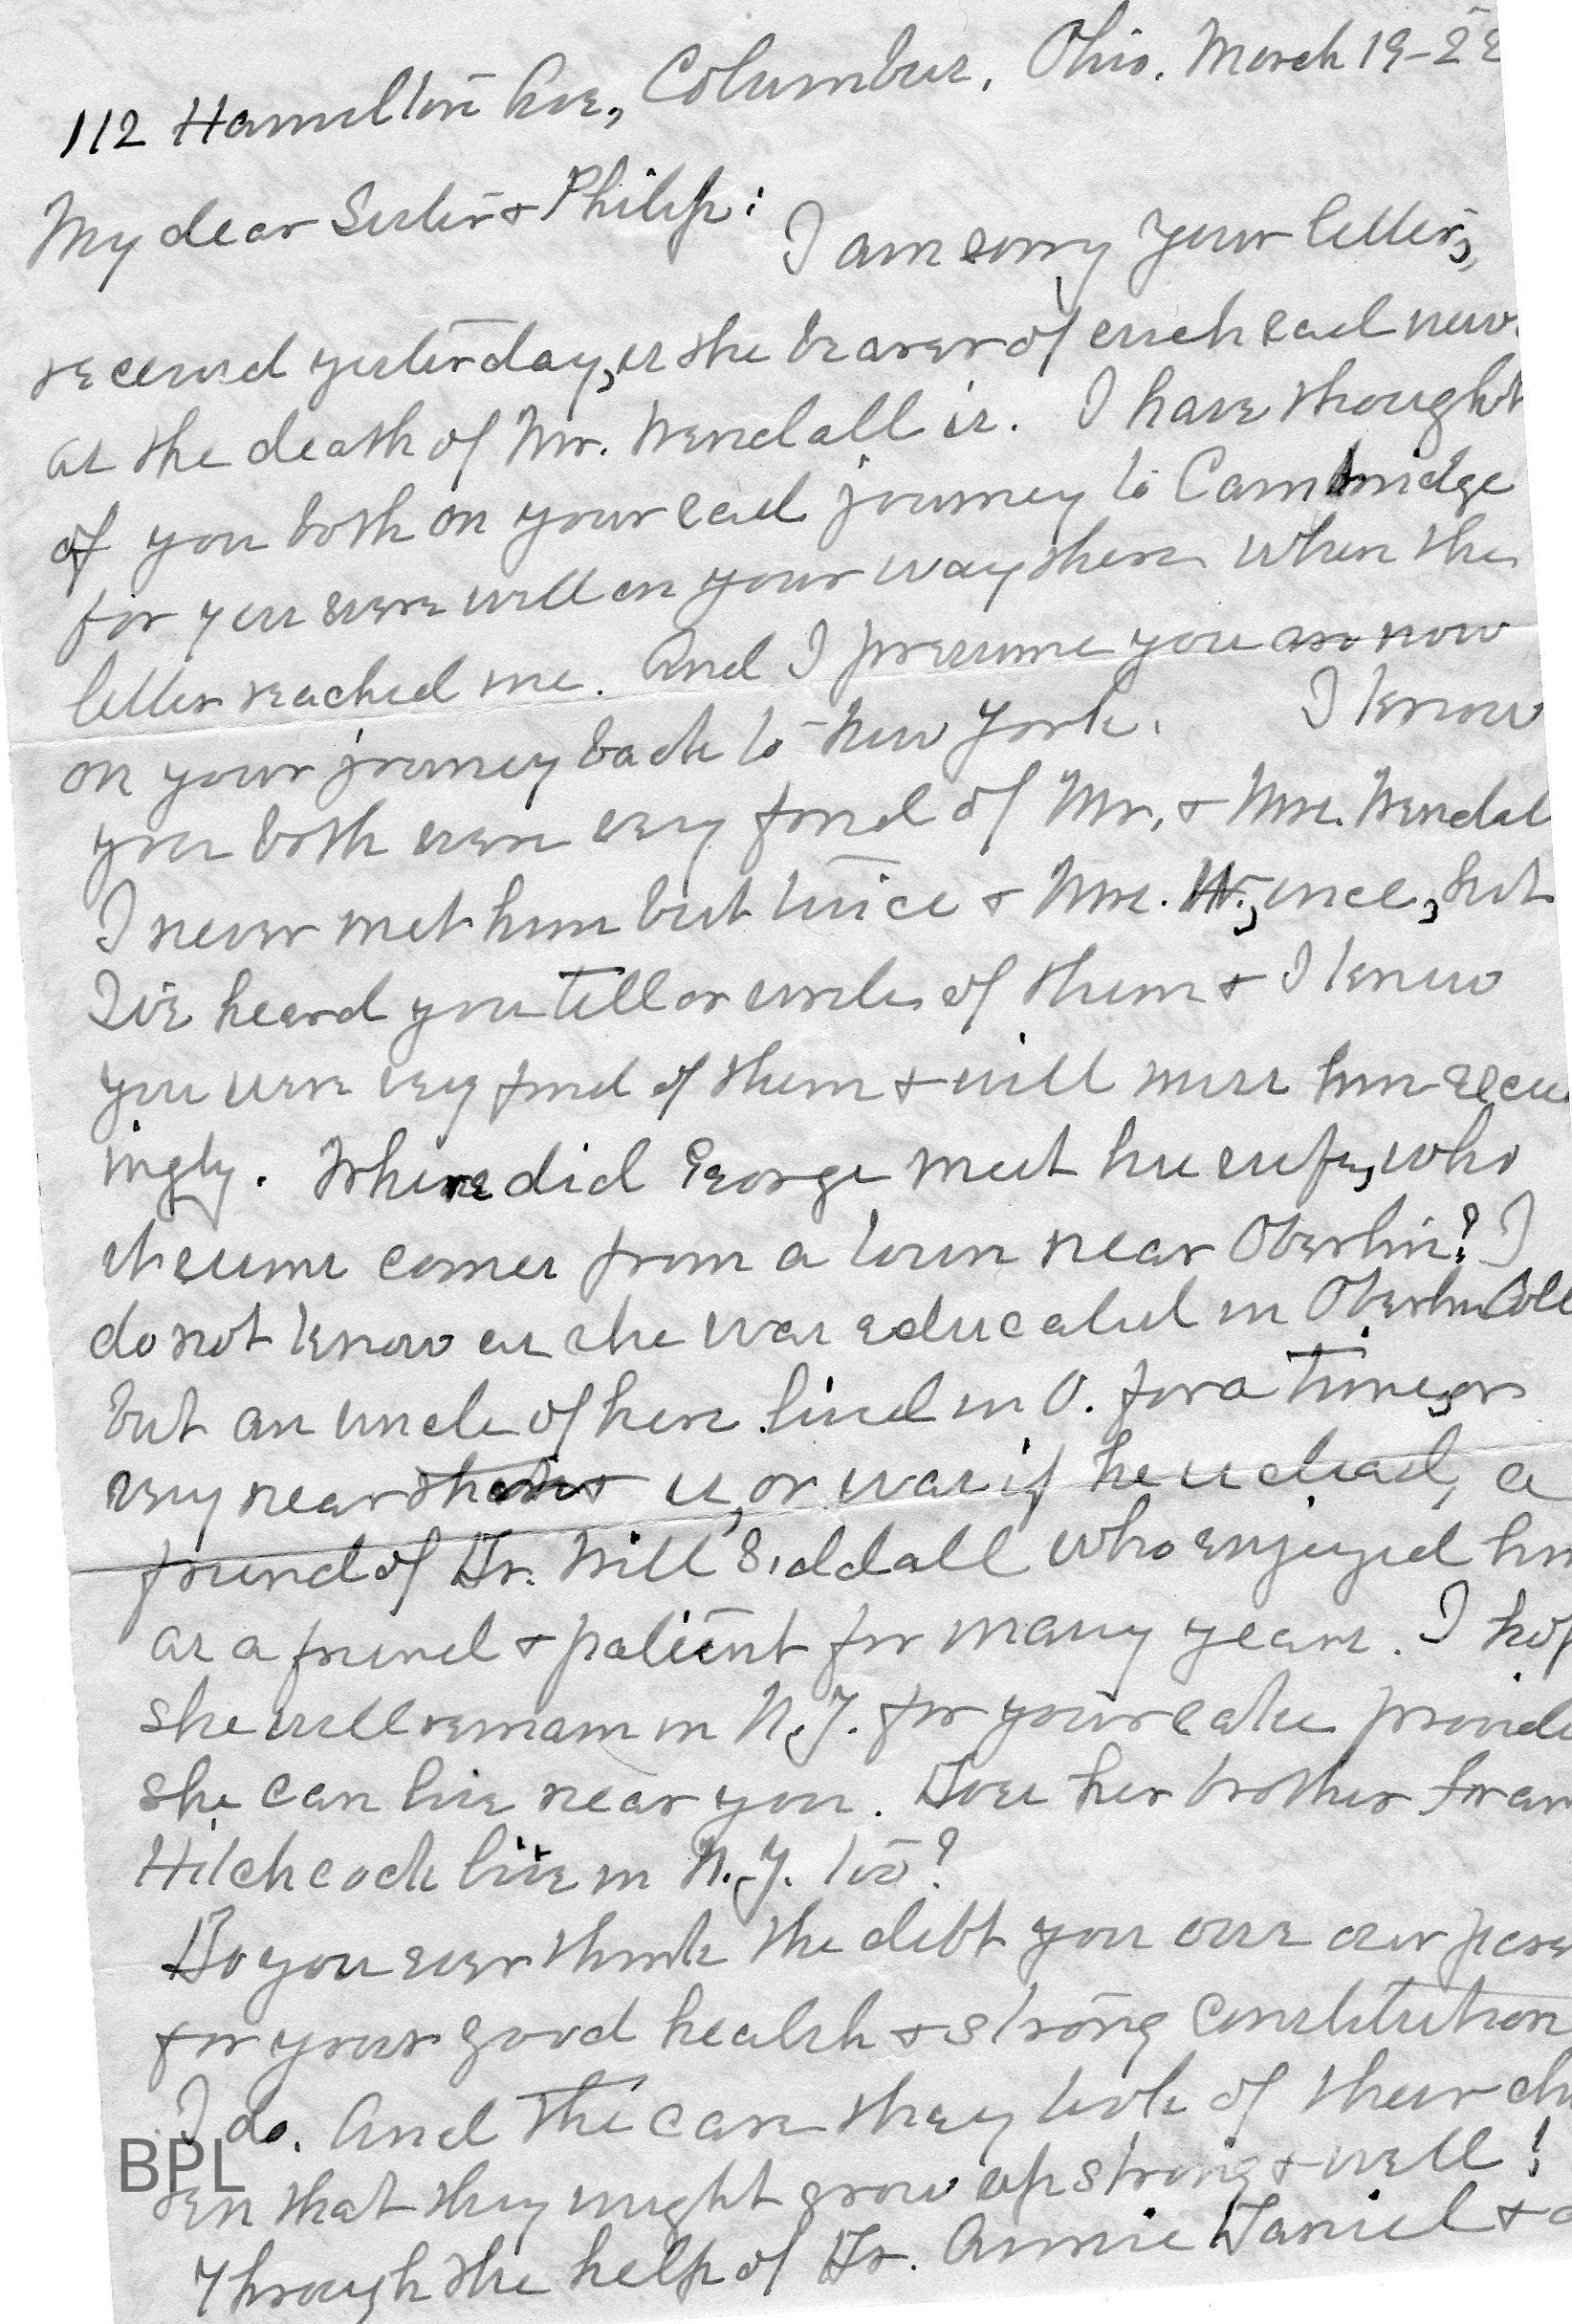 112 Hamilton Ave., Columbus, Ohio. March 19-22
My dear Sister & Philip:
I am sorry your letter,
received yesterday, is the bearer of such sad news
as the death of Mr. Wendall is. I have thought
of you both on your sad journey to Cambridge
for you were well on your way there when the
letter reached me. And I presume you are now
on your journey back to New York. I know
you both were very fond of Mr. & Mrs. Wendall
I never met him but twice & Mrs. W., once, but
I've heard you tell or write of them & I know
you were very fond of them & will miss him
ingly. Where did George meet his wife, who
it seems comes from a town near Oberlin? I
do not know as she was educated in Oberlin Coll
but an uncle of hers lived in O. for a time, or
very near & is, or was if he is dead, a
friend of Dr. Will Siddall who enjoyed him
as a friend & patient for many years. I hop
she will remain in N.Y. for your sake provide
she can live near you. Does her brother
Hitchcock live in N.Y. too?
Do you ever think the debt you owe our
for your good health & strong constitution
I do. And the care they took of their ch
ren that they might grow up strong & well!
Through the help of Dr. Annie Daniel &
BPL